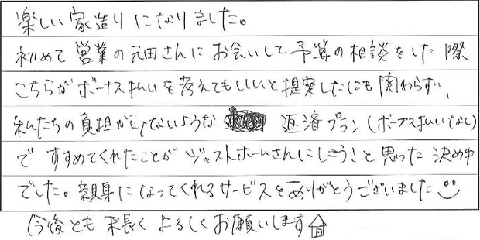 楽しい家造りになりました。
初めて営業の元田さんにお会いして予算の相談をした際
こちらがボーナス払いを考えてもしいいと提案したにも関わらず、
私たちの負担が少ないような 返済プラン(ボーナス払いなし)
ですすめてくれたことがジャストホームさんにしようと思った決め手
でした。親身になってくれるサービスをありがとうございました
今後とも末長くよろしくお願いします